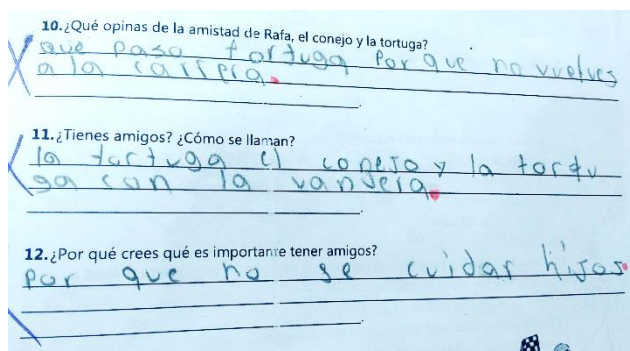 10.¿Qué opinas de la amistad de Rafa, el conejo y la tortuga?
que paso tortuga Por que no vuelves
a la carrera.
11.¿Tienes amigos? ¿Cómo se llaman?
la tortuga el conejo y la tortu
ga con la vandera.
12.¿Por qué crees qué es importante tener amigos?
por que no se cuidar hijos